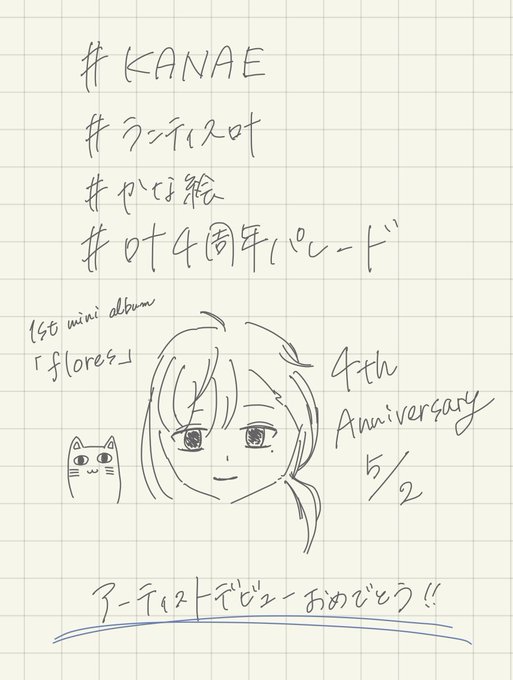 #KANAE
#ランティス叶
#かな絵
#叶4周年パレード
1st mini album
「flores」
4th
Anniversary
5/2
アーティストデビューおめでとう!!